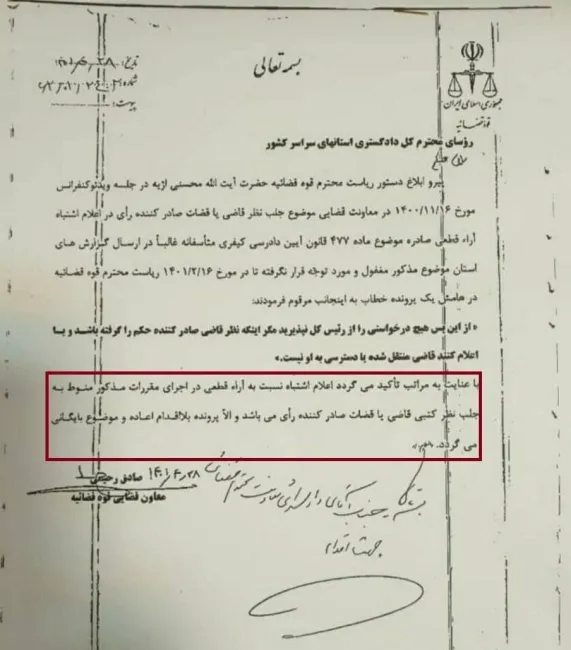 بسمه تعالی
جمهوری اسلامی ایران
قوه قضائیه
تاریخ:
شماره:
پیوست:
رؤسای محترم کل دادگستری استانهای سراسر کشور
سلام علیکم
پیرو ابلاغ دستور ریاست محترم قوه قضائیه حضرت آیت الله محسنی اژیه در جلسه ویدئوکنفرانس
مورخ ۱۴۰۰/۱۱/۱۶ در معاونت قضایی موضوع جلب نظر قاضی یا قضات صادر کننده رأی در اعلام اشتباه
آراء قطعی صادره موضوع ماده ۴۷۷ قانون آیین دادرسی کیفری متأسفانه غالباً در ارسال گزارش های
استان موضوع مذکور مغفول و مورد توجّه قرار نگرفته تا در مورخ ۱۴۰۱/۲/۱۶ ریاست محترم قوه قضائیه
در هامش یک پرونده خطاب به اینجانب مرقوم فرمودند:
« از این پس هیچ درخواستی را از رئیس کل نپذیرید مگر اینکه نظر قاضی صادر کننده حکم را گرفته باشند و یا
اعلام کنند قاضی منتقل شده یا دسترسی به او نیست.»
با عنایت به مراتب تأکید می گردد اعلام اشتباه نسبت به آراء قطعی در اجرای مقررات مذکور منوط به
جلب نظر کتبی قاضی یا قضات صادر کننده رأی می باشد و الاّ پرونده بلااقدام اعاده و موضوع بایگانی
می گردد.
صادق رحیمی
معاون قضایی قوه قضائیه
جهت اقدام